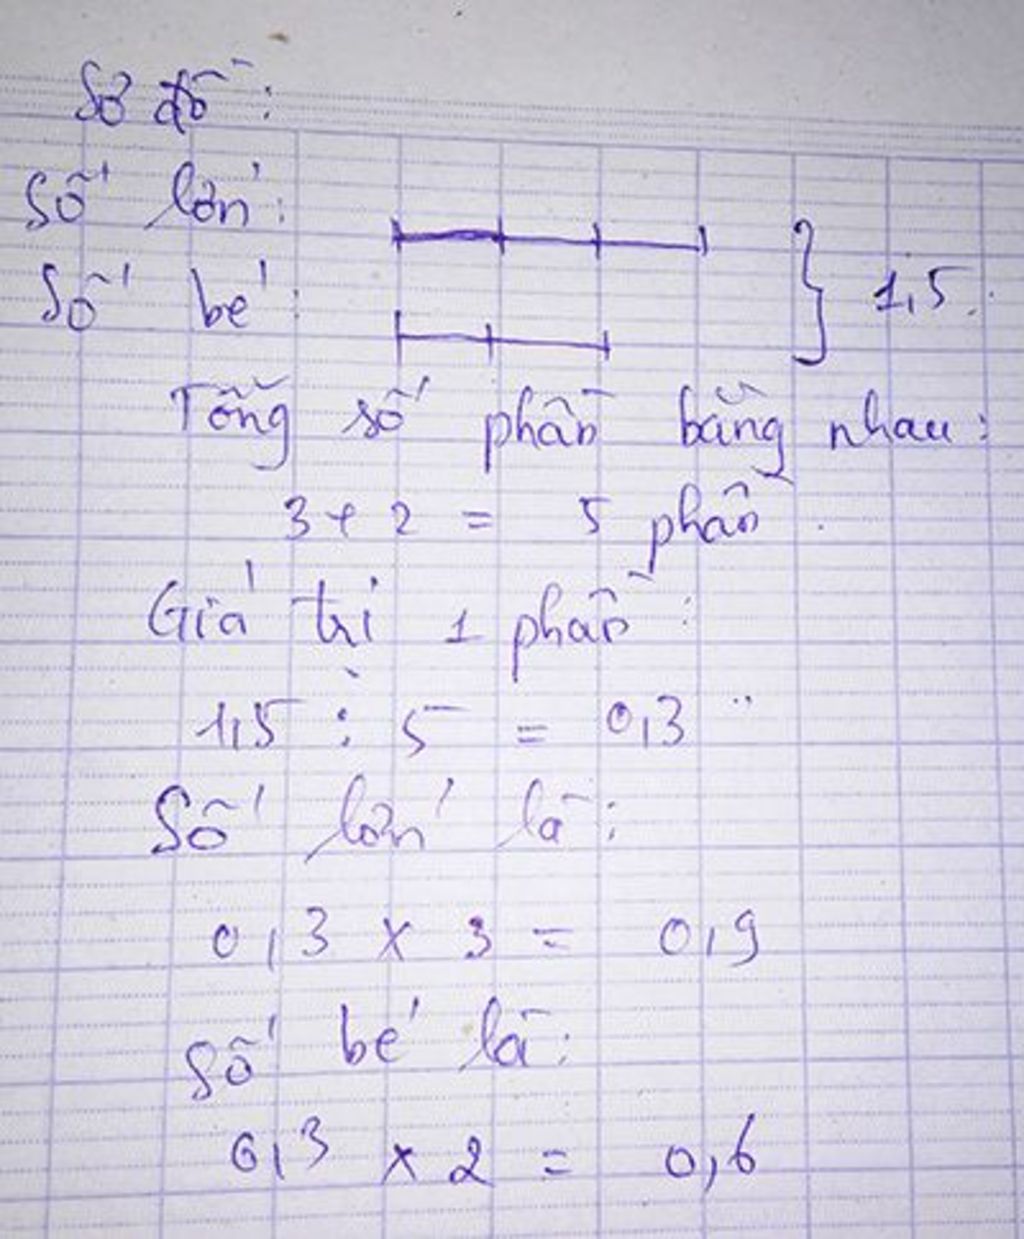 Sơ đồ:
Số lớn:
Số bé:
1,5.
Tổng số phần bằng nhau:
3 + 2 = 5 phần.
Giá trị 1 phần:
1,5 : 5 = 0,3
Số lớn là:
0,3 x 3 = 0,9
Số bé là:
0,3 x 2 = 0,6